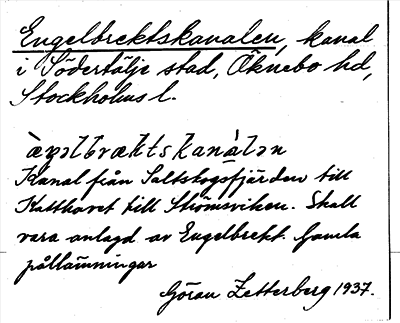 Engelbrektskanalen, kanal
i Södertälje stad, Öknebo hd,
Stockholms l.
æŋəlbræktskanàlən
Kanal från Saltskogsfjärden till
Katthavet till Strömsviken. Skall
vara anlagd av Engelbrekt. Gamla
pållämningar
Göran Zetterberg 1937.